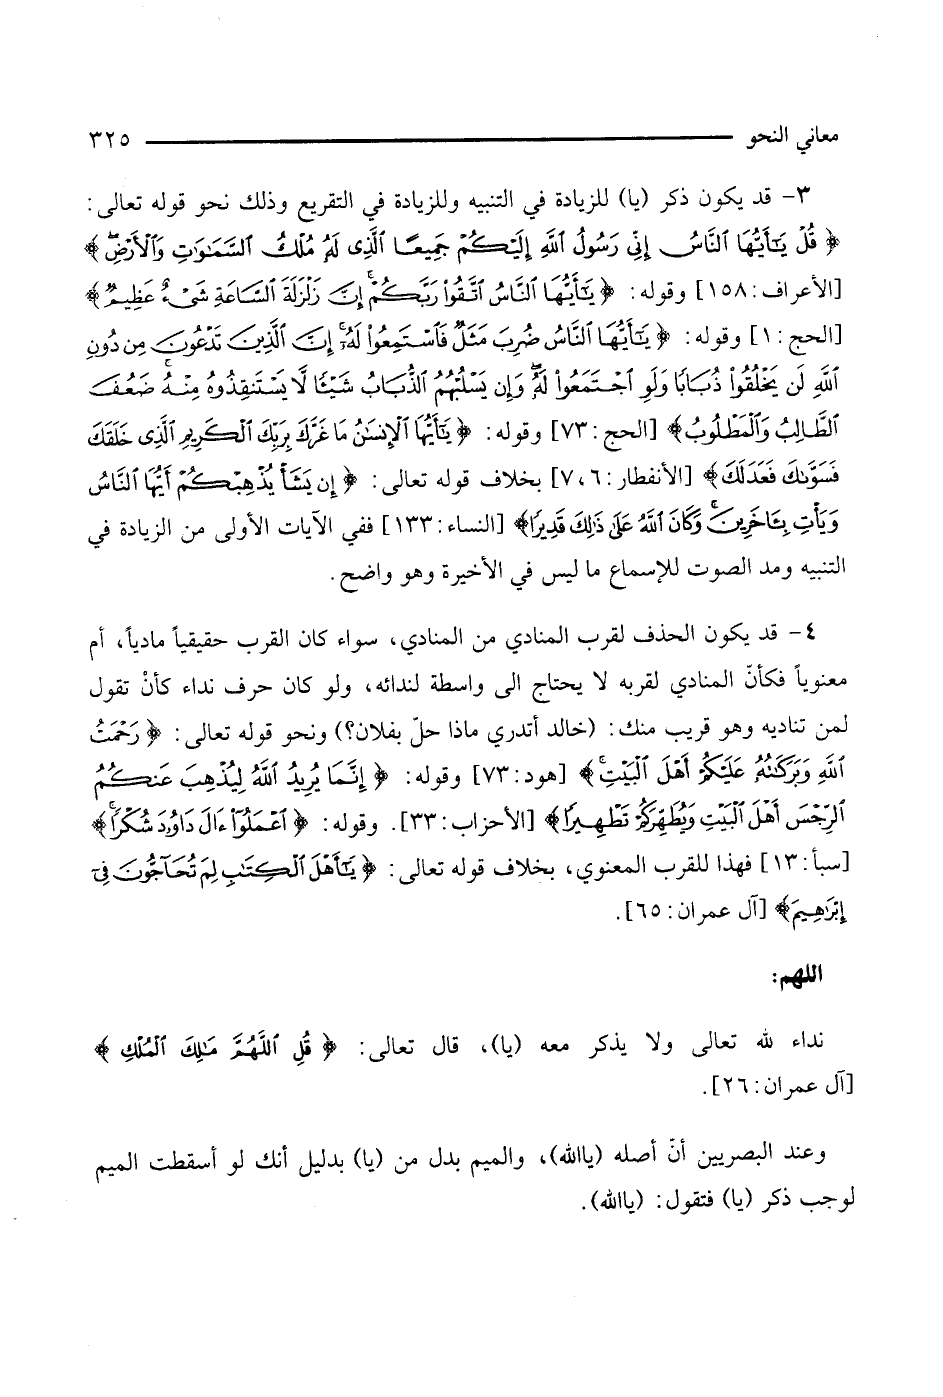 معاني النحو ٣٢٥
٣- قد يكون ذكر (يا) للزيادة في التنبيه وللزيادة في التقريع وذلك نحو قوله تعالى:
﴿ قُلْ يَٰٓأَيُّهَا ٱلنَّاسُ إِنِّى رَسُولُ ٱللَّهِ إِلَيْكُمْ جَمِيعًا ٱلَّذِى لَهُۥ مُلْكُ ٱلسَّمَٰوَٰتِ وَٱلْأَرْضِۖ ﴾
[الأعراف: ١٥٨] وقوله: ﴿ يَٰٓأَيُّهَا ٱلنَّاسُ ٱتَّقُوا۟ رَبَّكُمْۚ إِنَّ زَلْزَلَةَ ٱلسَّاعَةِ شَىْءٌ عَظِيمٌ ﴾
[الحج: ١] وقوله: ﴿ يَٰٓأَيُّهَا ٱلنَّاسُ ضُرِبَ مَثَلٌ فَٱسْتَمِعُوا۟ لَهُۥٓۚ إِنَّ ٱلَّذِينَ تَدْعُونَ مِن دُونِ
ٱللَّهِ لَن يَخْلُقُوا۟ ذُبَابًا وَلَوِ ٱجْتَمَعُوا۟ لَهُۥۖ وَإِن يَسْلُبْهُمُ ٱلذُّبَابُ شَيْـًٔا لَّا يَسْتَنقِذُوهُ مِنْهُۚ ضَعُفَ
ٱلطَّالِبُ وَٱلْمَطْلُوبُ ﴾ [الحج: ٧٣] وقوله: ﴿ يَٰٓأَيُّهَا ٱلْإِنسَٰنُ مَا غَرَّكَ بِرَبِّكَ ٱلْكَرِيمِ ٱلَّذِى خَلَقَكَ
فَسَوَّىٰكَ فَعَدَلَكَ ﴾ [الأنفطار: ٦، ٧] بخلاف قوله تعالى: ﴿ إِن يَشَأْ يُذْهِبْكُمْ أَيُّهَا ٱلنَّاسُ
وَيَأْتِ بِـَٔاخَرِينَۚ وَكَانَ ٱللَّهُ عَلَىٰ ذَٰلِكَ قَدِيرًا ﴾ [النساء: ١٣٣] ففي الآيات الأولى من الزيادة في
التنبيه ومد الصوت للإسماع ما ليس في الأخيرة وهو واضح.
٤- قد يكون الحذف لقرب المنادي من المنادي، سواء كان القرب حقيقياً مادياً، أم
معنوياً فكأنّ المنادي لقربه لا يحتاج الى واسطة لندائه، ولو كان حرف نداء كأنْ تقول
لمن تناديه وهو قريب منك: (خالد أتدري ماذا حلّ بفلان؟) ونحو قوله تعالى: ﴿ رَحْمَتُ
ٱللَّهِ وَبَرَكَٰتُهُۥ عَلَيْكُمْ أَهْلَ ٱلْبَيْتِۚ ﴾ [هود: ٧٣] وقوله: ﴿ إِنَّمَا يُرِيدُ ٱللَّهُ لِيُذْهِبَ عَنكُمُ
ٱلرِّجْسَ أَهْلَ ٱلْبَيْتِ وَيُطَهِّرَكُمْ تَطْهِيرًا ﴾ [الأحزاب: ٣٣]. وقوله: ﴿ ٱعْمَلُوٓا۟ ءَالَ دَاوُۥدَ شُكْرًاۚ ﴾
[سبأ: ١٣] فهذا للقرب المعنوي، بخلاف قوله تعالى: ﴿ يَٰٓأَهْلَ ٱلْكِتَٰبِ لِمَ تُحَآجُّونَ فِىٓ
إِبْرَٰهِيمَ ﴾ [آل عمران: ٦٥].
اللهم:
نداء لله تعالى ولا يذكر معه (يا)، قال تعالى: ﴿ قُلِ ٱللَّهُمَّ مَٰلِكَ ٱلْمُلْكِ ﴾
[آل عمران: ٢٦].
وعند البصريين أنّ أصله (ياالله)، والميم بدل من (يا) بدليل أنك لو أسقطت الميم
لوجب ذكر (يا) فتقول: (ياالله).